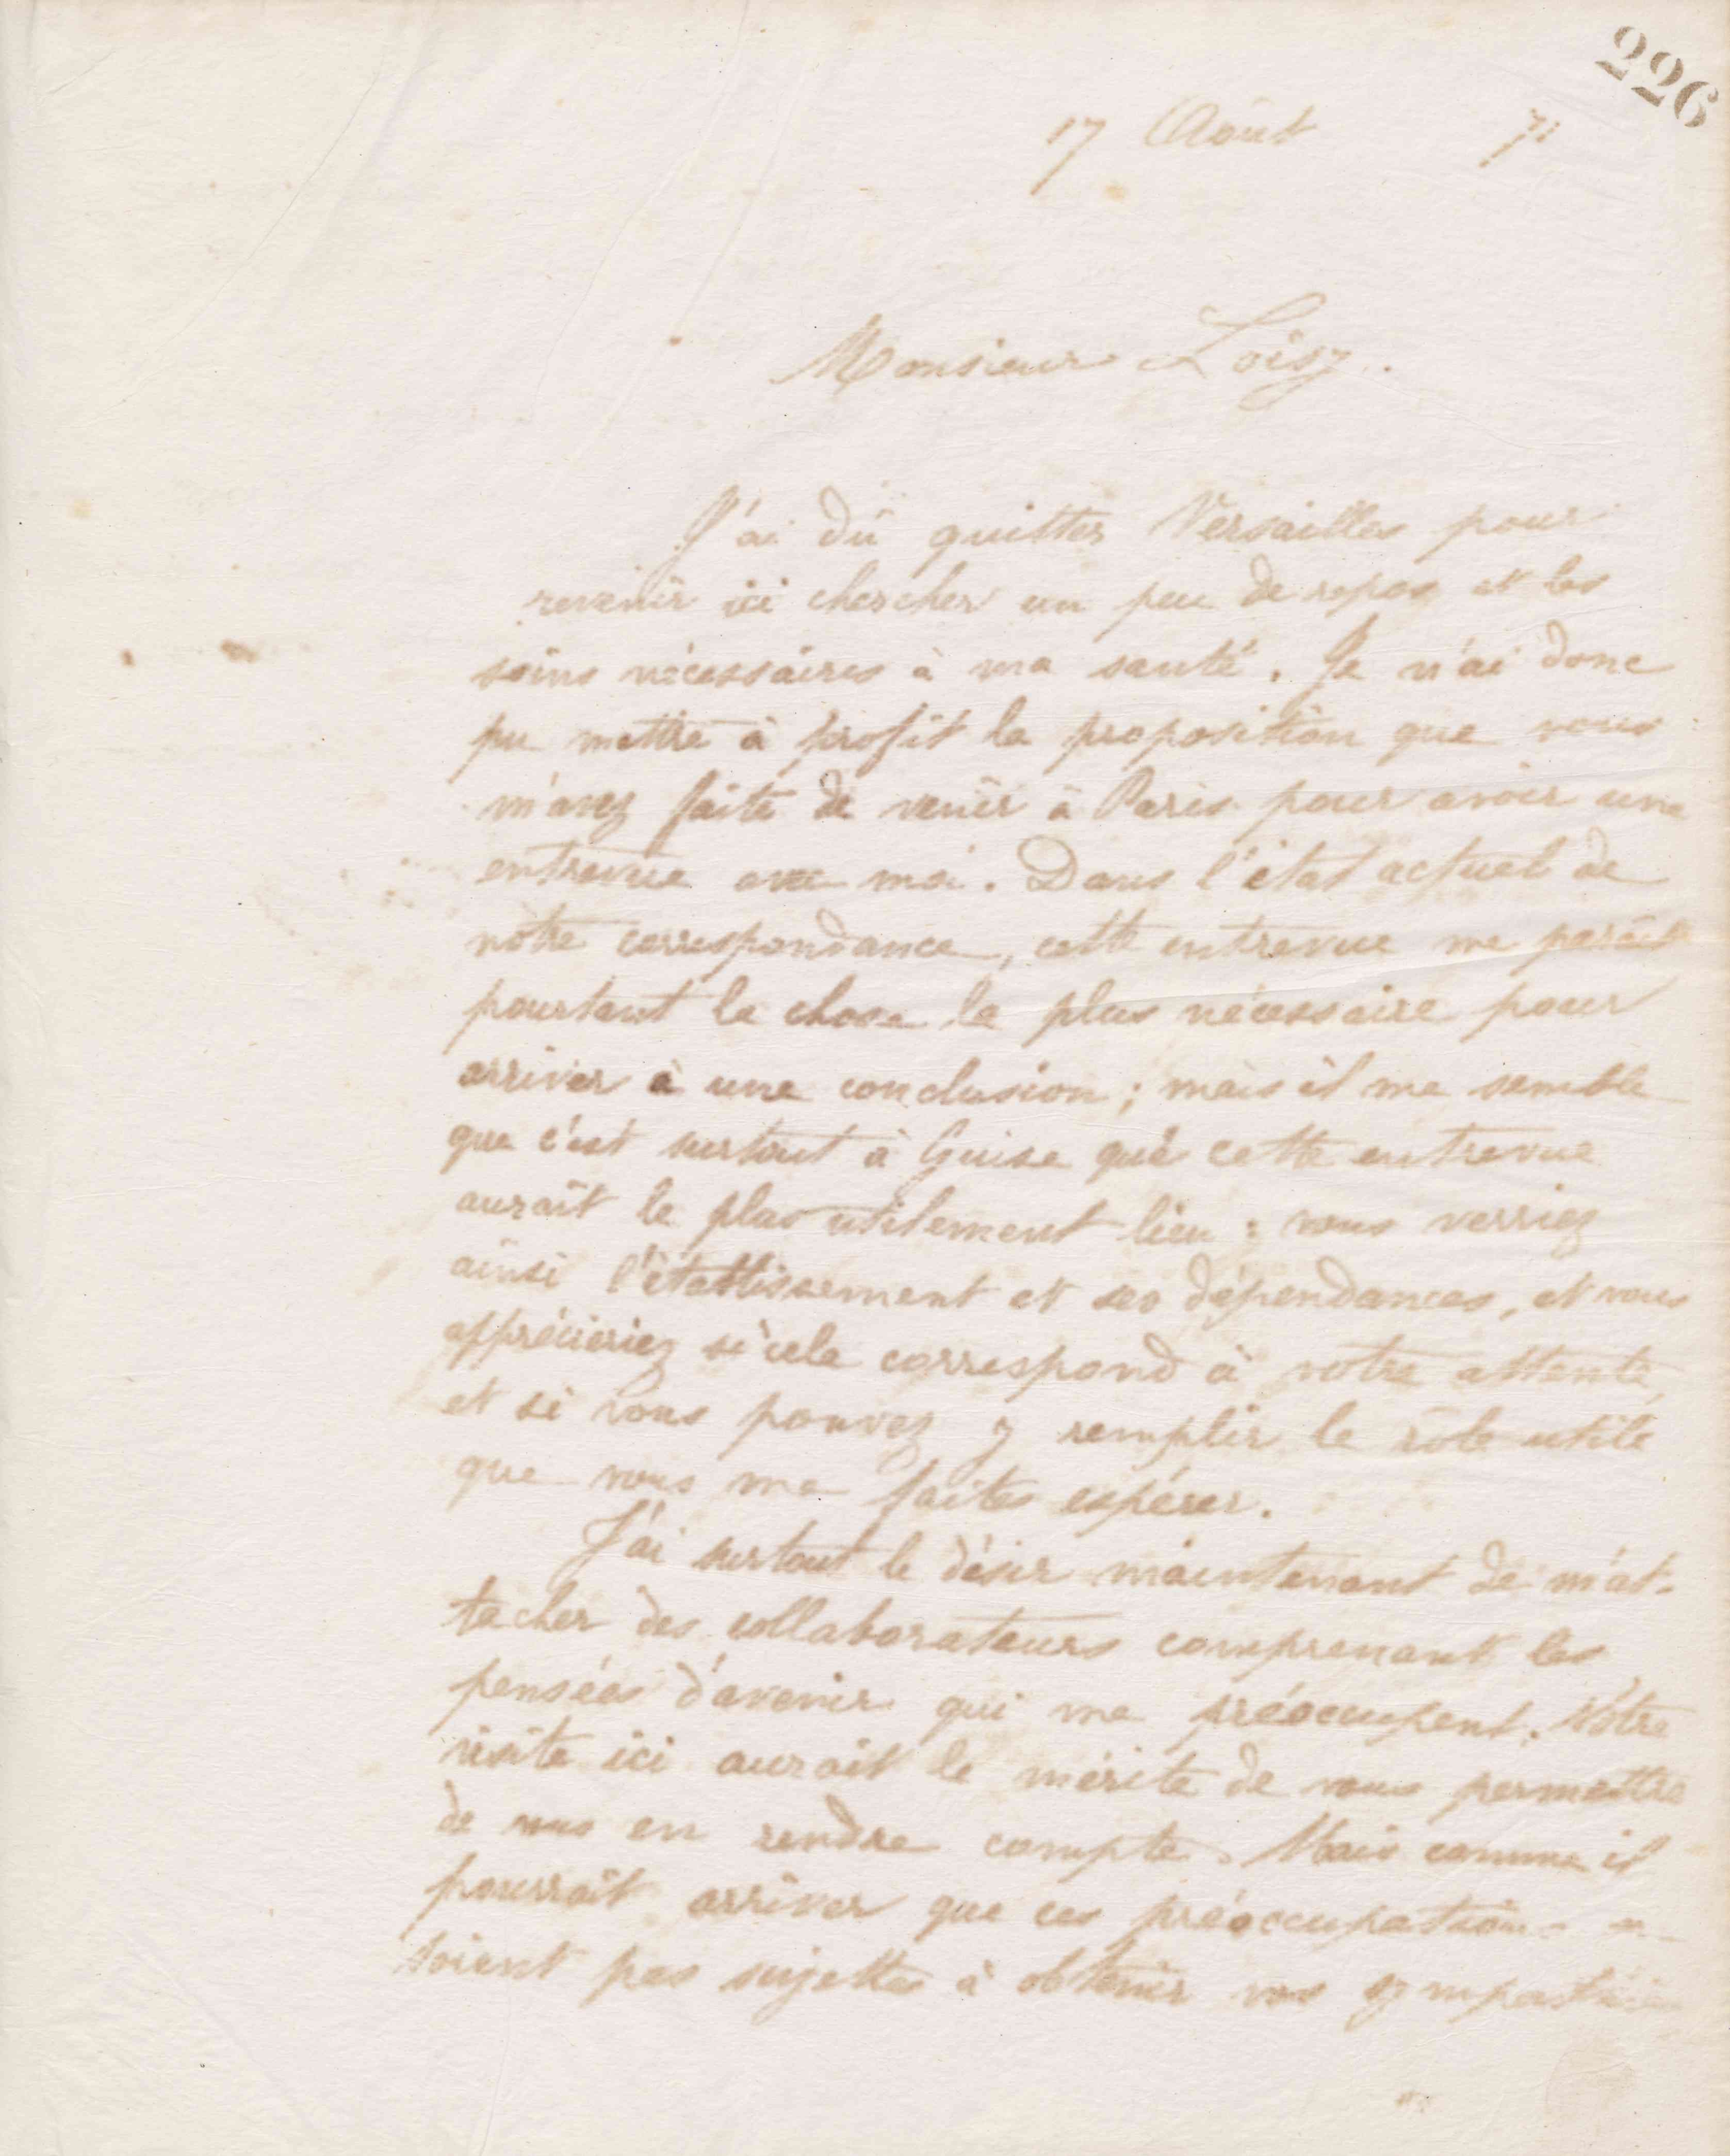 226
17 Août 71
Monsieur Loisy.
J'ai dû quitter Versailles pour
revenir ici chercher un peu de repos et les
soins nécessaires à ma santé. Je n'ai donc
pu mettre à profit la proposition que vous
m'avez faite de venir à Paris pour avoir une
entrevue avec moi. Dans l'état actuel de
notre correspondance, cette entrevue me paraît
pourtant la chose la plus nécessaire pour
arriver à une conclusion ; mais il me semble
que c'est surtout à Guise que cette entrevue
aurait le plus utilement lieu : vous verriez
ainsi l'établissement et ses dépendances, et vous
apprécieriez si cela correspond à votre attente,
et si vous pouvez y remplir le rôle utile
que vous me faites espérer.
J'ai surtout le désir maintenant de m'at-
tacher des collaborateurs comprenant les
pensées d'avenir qui me préoccupent. Votre
visite ici aurait le mérite de vous permettre
de vous en rendre compte. Mais comme il
pourrait arriver que ces préoccupations
soient pas sujettes à obtenir vos sympathies